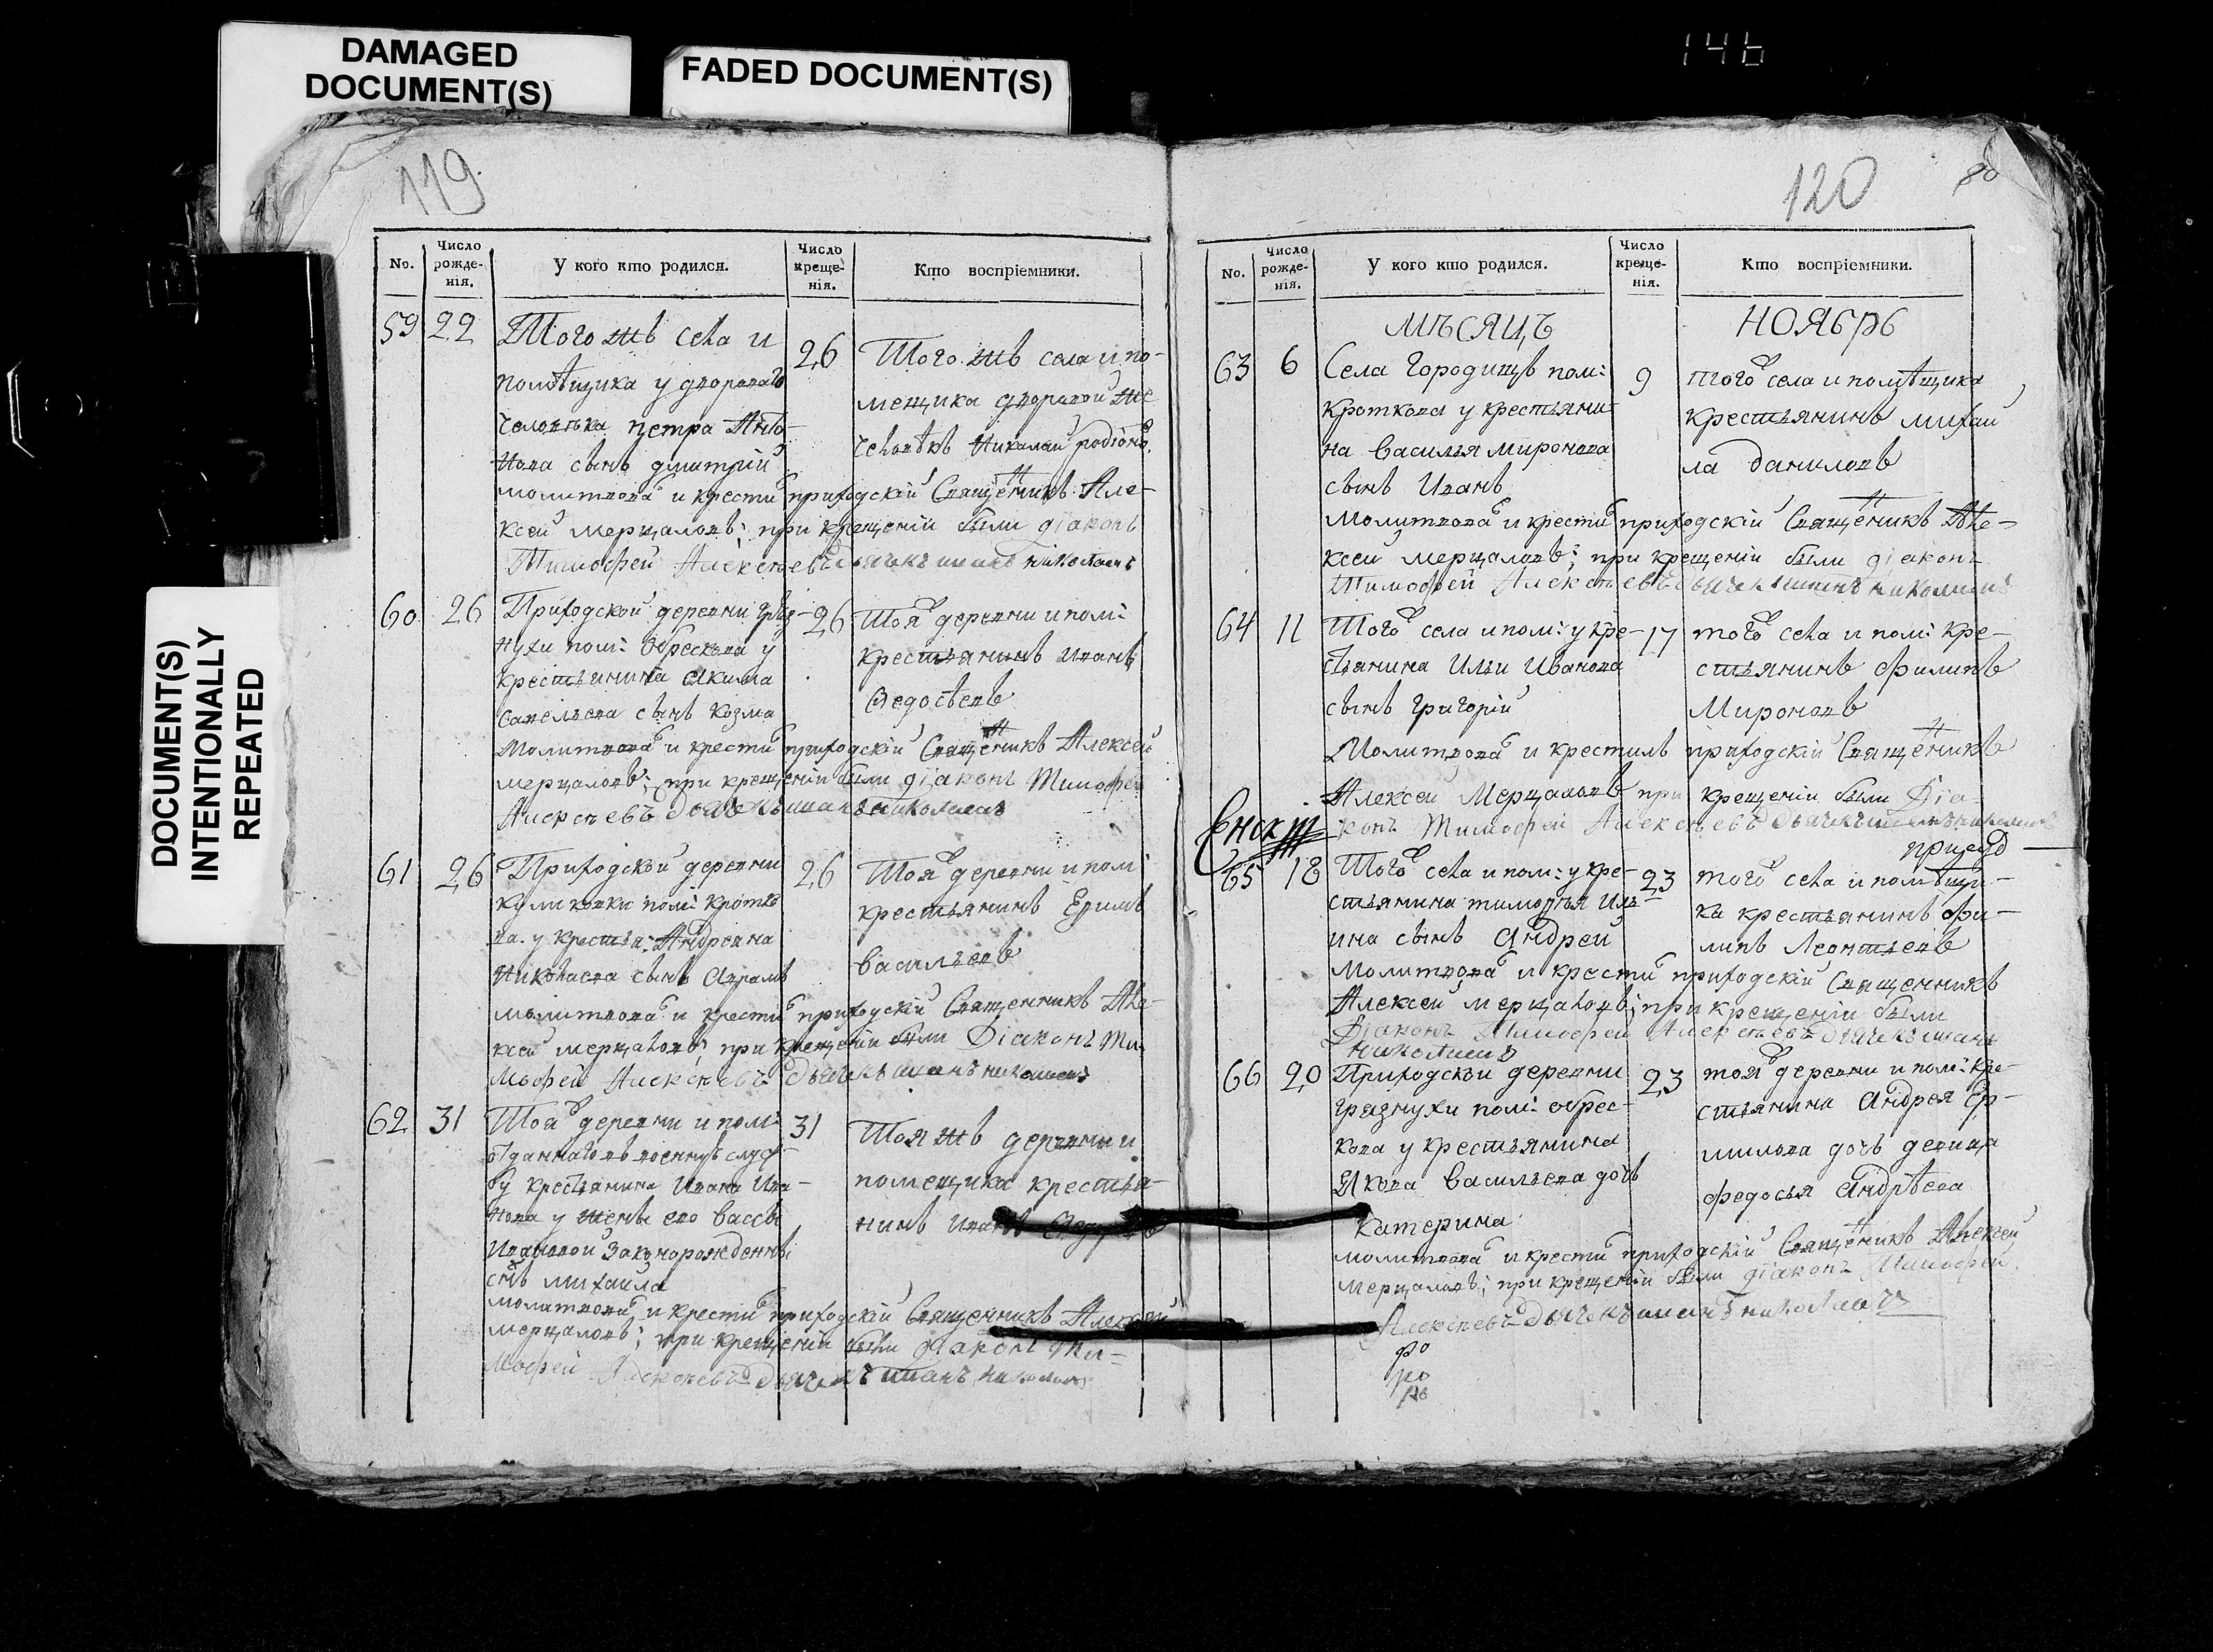 DAMAGED
DOCUMENT(S)
FADED DOCUMENT(S)
146
DOCUMENT(S)
INTENTIONALLY
REPEATED
119
No.
Число рожде-нія.
У кого кто родился.
Число креще-нія.
Кто воспріемники.
59 22
Того жъ села и
помѣщика у двороваго
человѣка петра Анто-
нова сынъ димитрій
26
Того жъ села и по-
мещика дворовой же
человѣкъ Николай родіоно
молитвова и крести приходскій Священикъ Але-
ксей мерцаловъ; при крещеніи были діаконъ
Тимофей Алексѣевъ дьячекъ иванъ николаевъ
60 26
Приходской деревни Гряз-
нухи пом: Обрескова у
крестьянина Якима
савельева сынъ козма
26
Тоя деревни и пом:
крестьянинъ иванъ
Ѳедосѣевъ
Молитвова и крести приходскій Священикъ Алексей
мерцаловъ; при крещеніи были діаконъ Тимофей
Алексѣевъ дьячекъ иванъ николаевъ
61 26
Приходской деревни
куликовки пом: кротко
ва у крестья: Андреяна
Николаева сынъ Аврамъ
26
Тоя деревни и пом:
крестьянинъ Ефимъ
васильевъ
молитвова и крести приходскій Священникъ Але-
ксей мерцаловъ; при крещеніи были Діаконъ Ти
мофей Алексѣевъ дьячекъ иванъ николаевъ
62 31
Тоя деревни и пом:
отданнаго въ военную служ-
бу крестьянина Ивана Ива-
нова у жены ево вассы
Ивановой законорожденны
снъ михаила
31
Тоя жъ деревни и
помещика крестья-
нинъ иванъ
молитвова и крести приходскій Священникъ Алексей
мерцаловъ; при крещеніи были діаконъ Ти=
мофей Алексѣевъ дьячекъ иванъ николаевъ
120
80
No.
Число рожде-нія.
У кого кто родился.
Число креще-нія.
Кто воспріемники.
МѢСЯЦЪ НОЯБРЬ
63 6
Села Городищъ пом:
кроткова у крестьяни-
на Василья миронова
сынъ Иванъ
9
того села и помѣщика
крестьянинъ михаи
ла даниловъ
Молитвова и крести приходскій Священикъ Але-
ксей мерцаловъ; при крещеніи были діаконъ
Тимофей Алексѣевъ дьячекъ иванъ николаевъ
64 11
Того села и пом: у кре-
стьянина Ильи Иванова
сынъ григорій
17
того села и пом: кре-
стьянинъ филипъ
Мироновъ
Молитвова и крестилъ приходскій Священикъ
Алексей Мерцаловъ при крещеніи были Діа-
конъ Тимофей Алексѣевъ дьячекъ иванъ николаевъ
65 18
Того села и пом: у кре-
стьянина тимофея Иль-
ина сынъ Андрей
23
того села и помѣщи-
ка крестьянинъ фи-
липъ Леонтьевъ
Молитвова и крести приходскій Священникъ
Алексей мерцаловъ; при крещеніи были
Діаконъ Тимофей Алексѣевъ дьячекъ иванъ
николаевъ
66 20
Приходской деревни
грязнухи пом: обрес-
кова у крестьянина
Якова Васильева дочь
Катерина
23
тоя деревни и пом: кре-
стьянина Андрея Ер-
милова дочь девица
федосья Андрѣева
молитвова и крести приходскій Священикъ Алексей
мерцаловъ; при крещеніи были діаконъ Тимофей
Алексѣевъ дьячекъ иванъ николаевъ